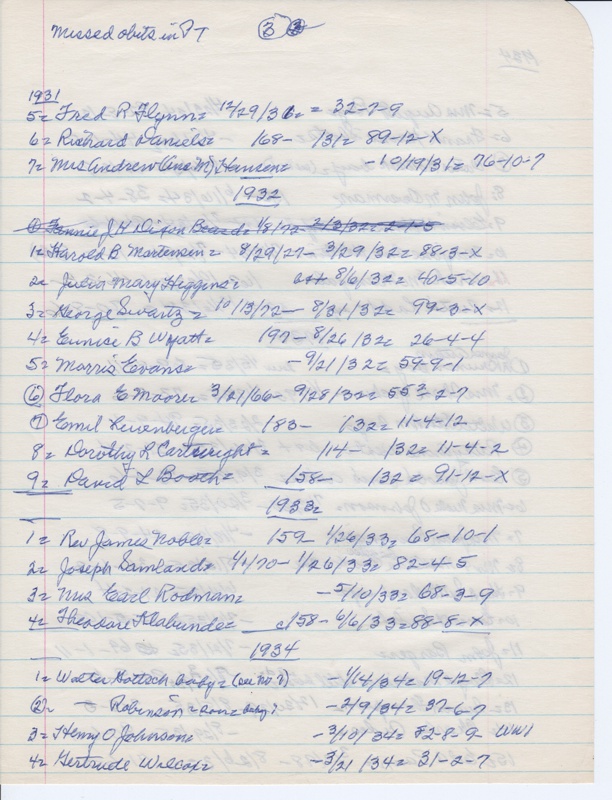 Missed obits in PT ③
1931
5= Fred R Flynn= 12/29/31= = 32-7-9
6= Richard Daniels= 168- /31= 89-12-X
7= Mrs Andrew (Ane M) Hansen= -10/19/31= 76-10-7
1932
Fannie J.H Dixon Beard= 1/8/72- 2/3/32=2-7-5
1= Harold B Mortensen= 8/29/27- 3/29/32= 88-3-X
2= Julia Mary Higgins= 8/6/32= 40-5-10
3= George Swartz= 10/13/72- 8/31/32= 99-3-X
4= Eunice B Wyatt= 197- 8/26/32= 26-4-4
5= Morris Evans= -9/21/32= 59-9-1
⑥ Flora E Moore= 3/21/66- 9/28/32= 553-2-7
⑦ Emil 183- /32= 11-4-12
8= Dorothy R Cartwright= 114- /32= 11-4-2
9= David L Booth= 158- /32= 91-12-X
1933=
1= Rev James Noble= 159- 1/26/33= 68-10-1
2= Joseph Samland= 4/1/70- 1/26/33= 82-4-5
3= Mrs Earl Rodman= -5/10/33= 68-3-9
4= Theodore Klabunde= c158- 6/6/33=88-8-X
1934
1= Walter Hottsch baby= (see No 8) -1/14/34= 19-12-7
②= Robinson= baby? -2/9/34= 37-6-7
3= Henry O Johnson= -3/10/34= F2-8-9 WW1
4= Gertrude Wilcox= -3/21/34= 31-2-7